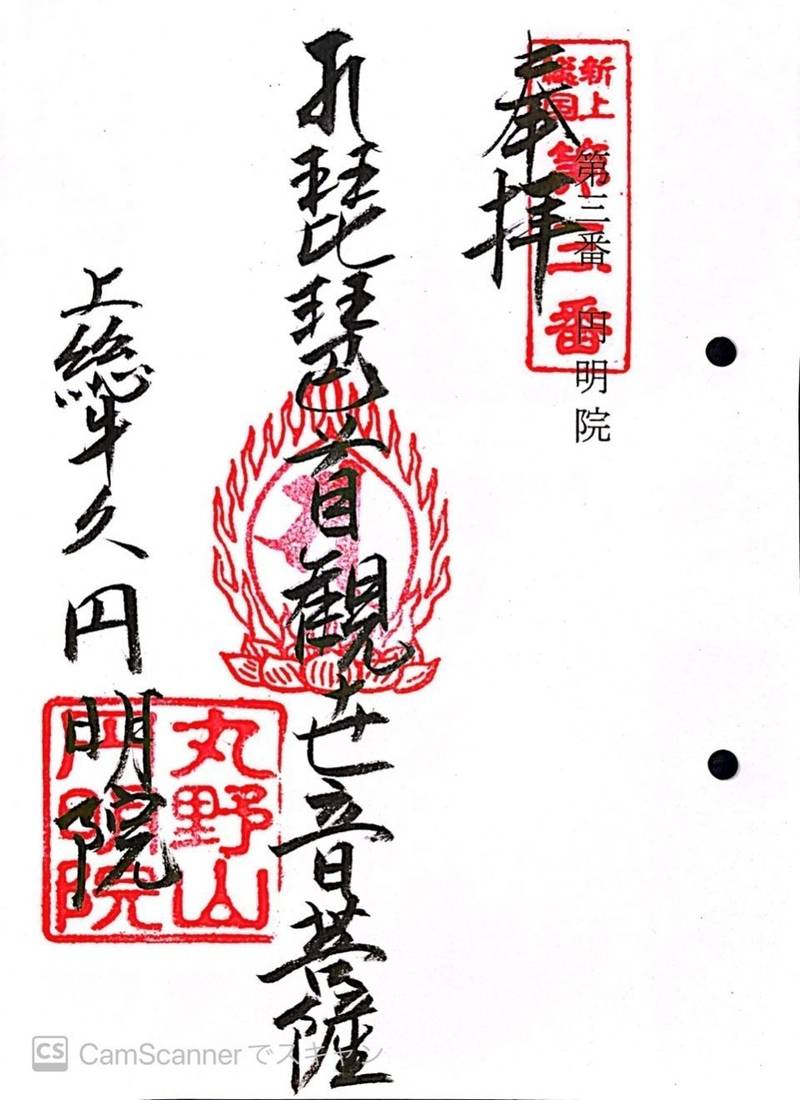 新上
総国
第三番
第三番 円明院
奉拝
琵琶首観世音菩薩
上総牛久円明院
丸野山
円明院
CS CamScannerでスキャン